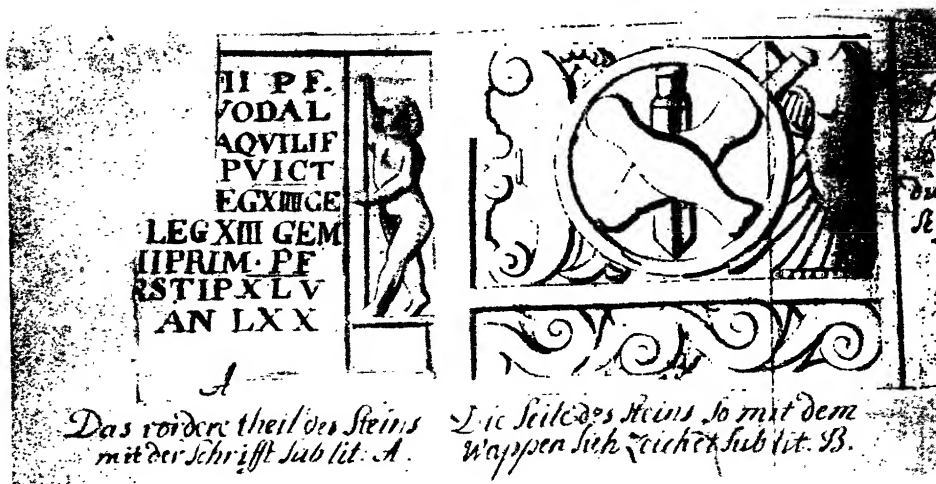 II P F.
VODAL
AQVILIF
PVICT
EGXIIIIGE
LEG XIII GEM
IIPRIM·PF
RSTIPXLV
AN LXX
A
Das vordere theil des Steins
mit der schrifft sub lit. A.
Die seite des steins so mit dem
Wappen sich zeichet sub lit. B.